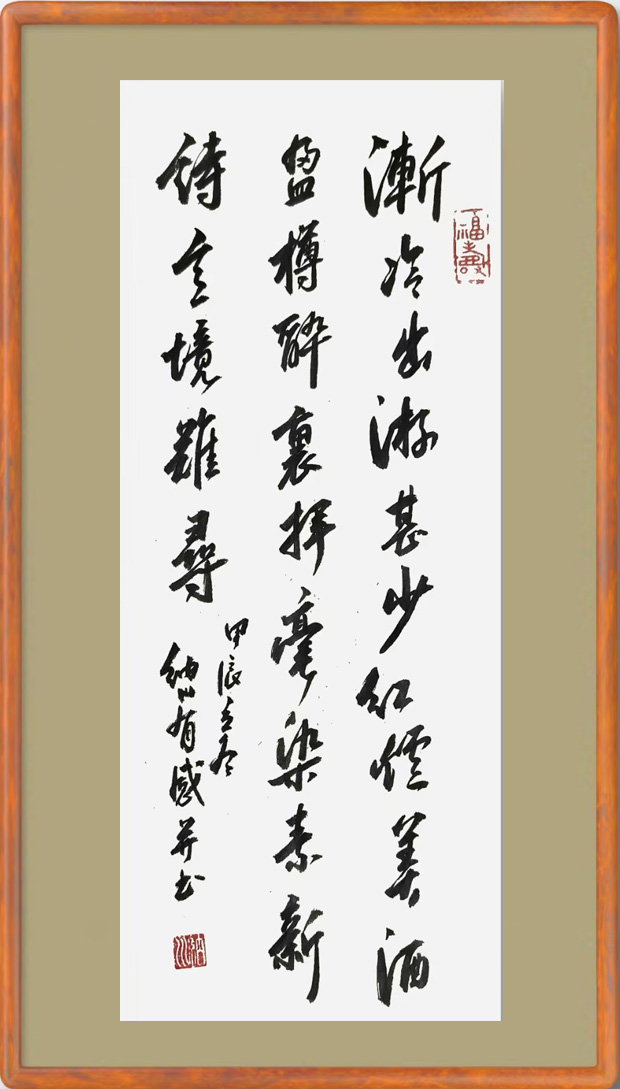 漸冷出游甚少紅爐美酒
盈樽醉裏揮毫染素新
詩意境難尋
甲辰立冬
有感并书